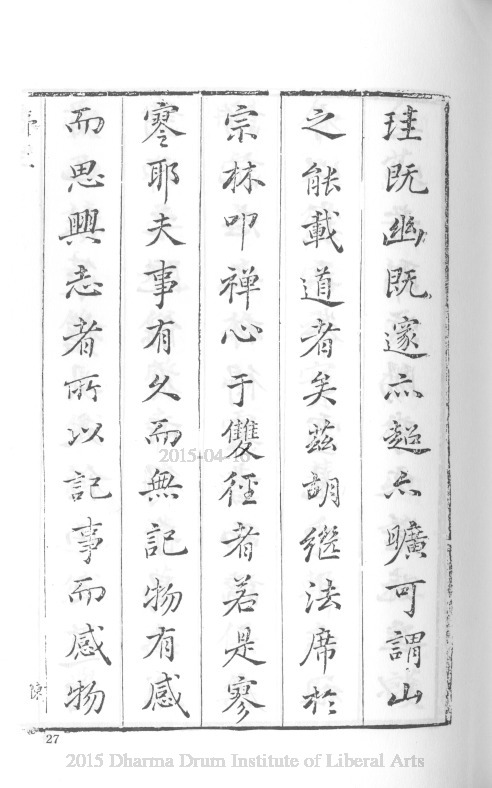 珪既幽既邃亦超亦曠可謂山
之能載道者矣茲胡繼法席於
宗林叩禅心于雙徑者若是寥
寥耶夫事有久而無記物有感
而思興志者所以記事而感物
27
2015-04-16
2015 Dharma Drum Institute of Liberal Arts